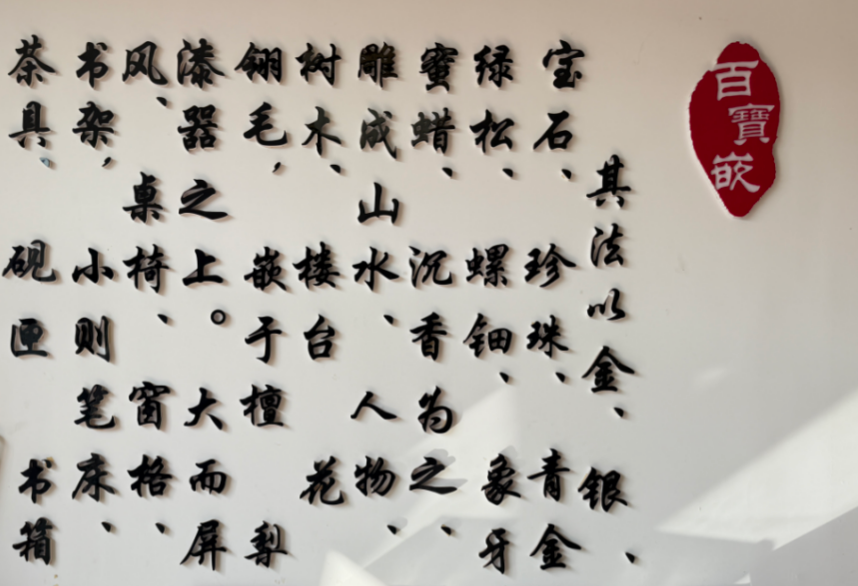 百寶嵌
其法以金、银、
宝石、珍珠、青金
绿松、螺钿、象牙
蜜蜡、沉香为之、
雕成山水、人物、
树木、楼台花
翎毛，嵌于檀梨
漆器之上。大而屏
风、桌椅、窗格、
书架，小则笔床、
茶具、砚匣书箱